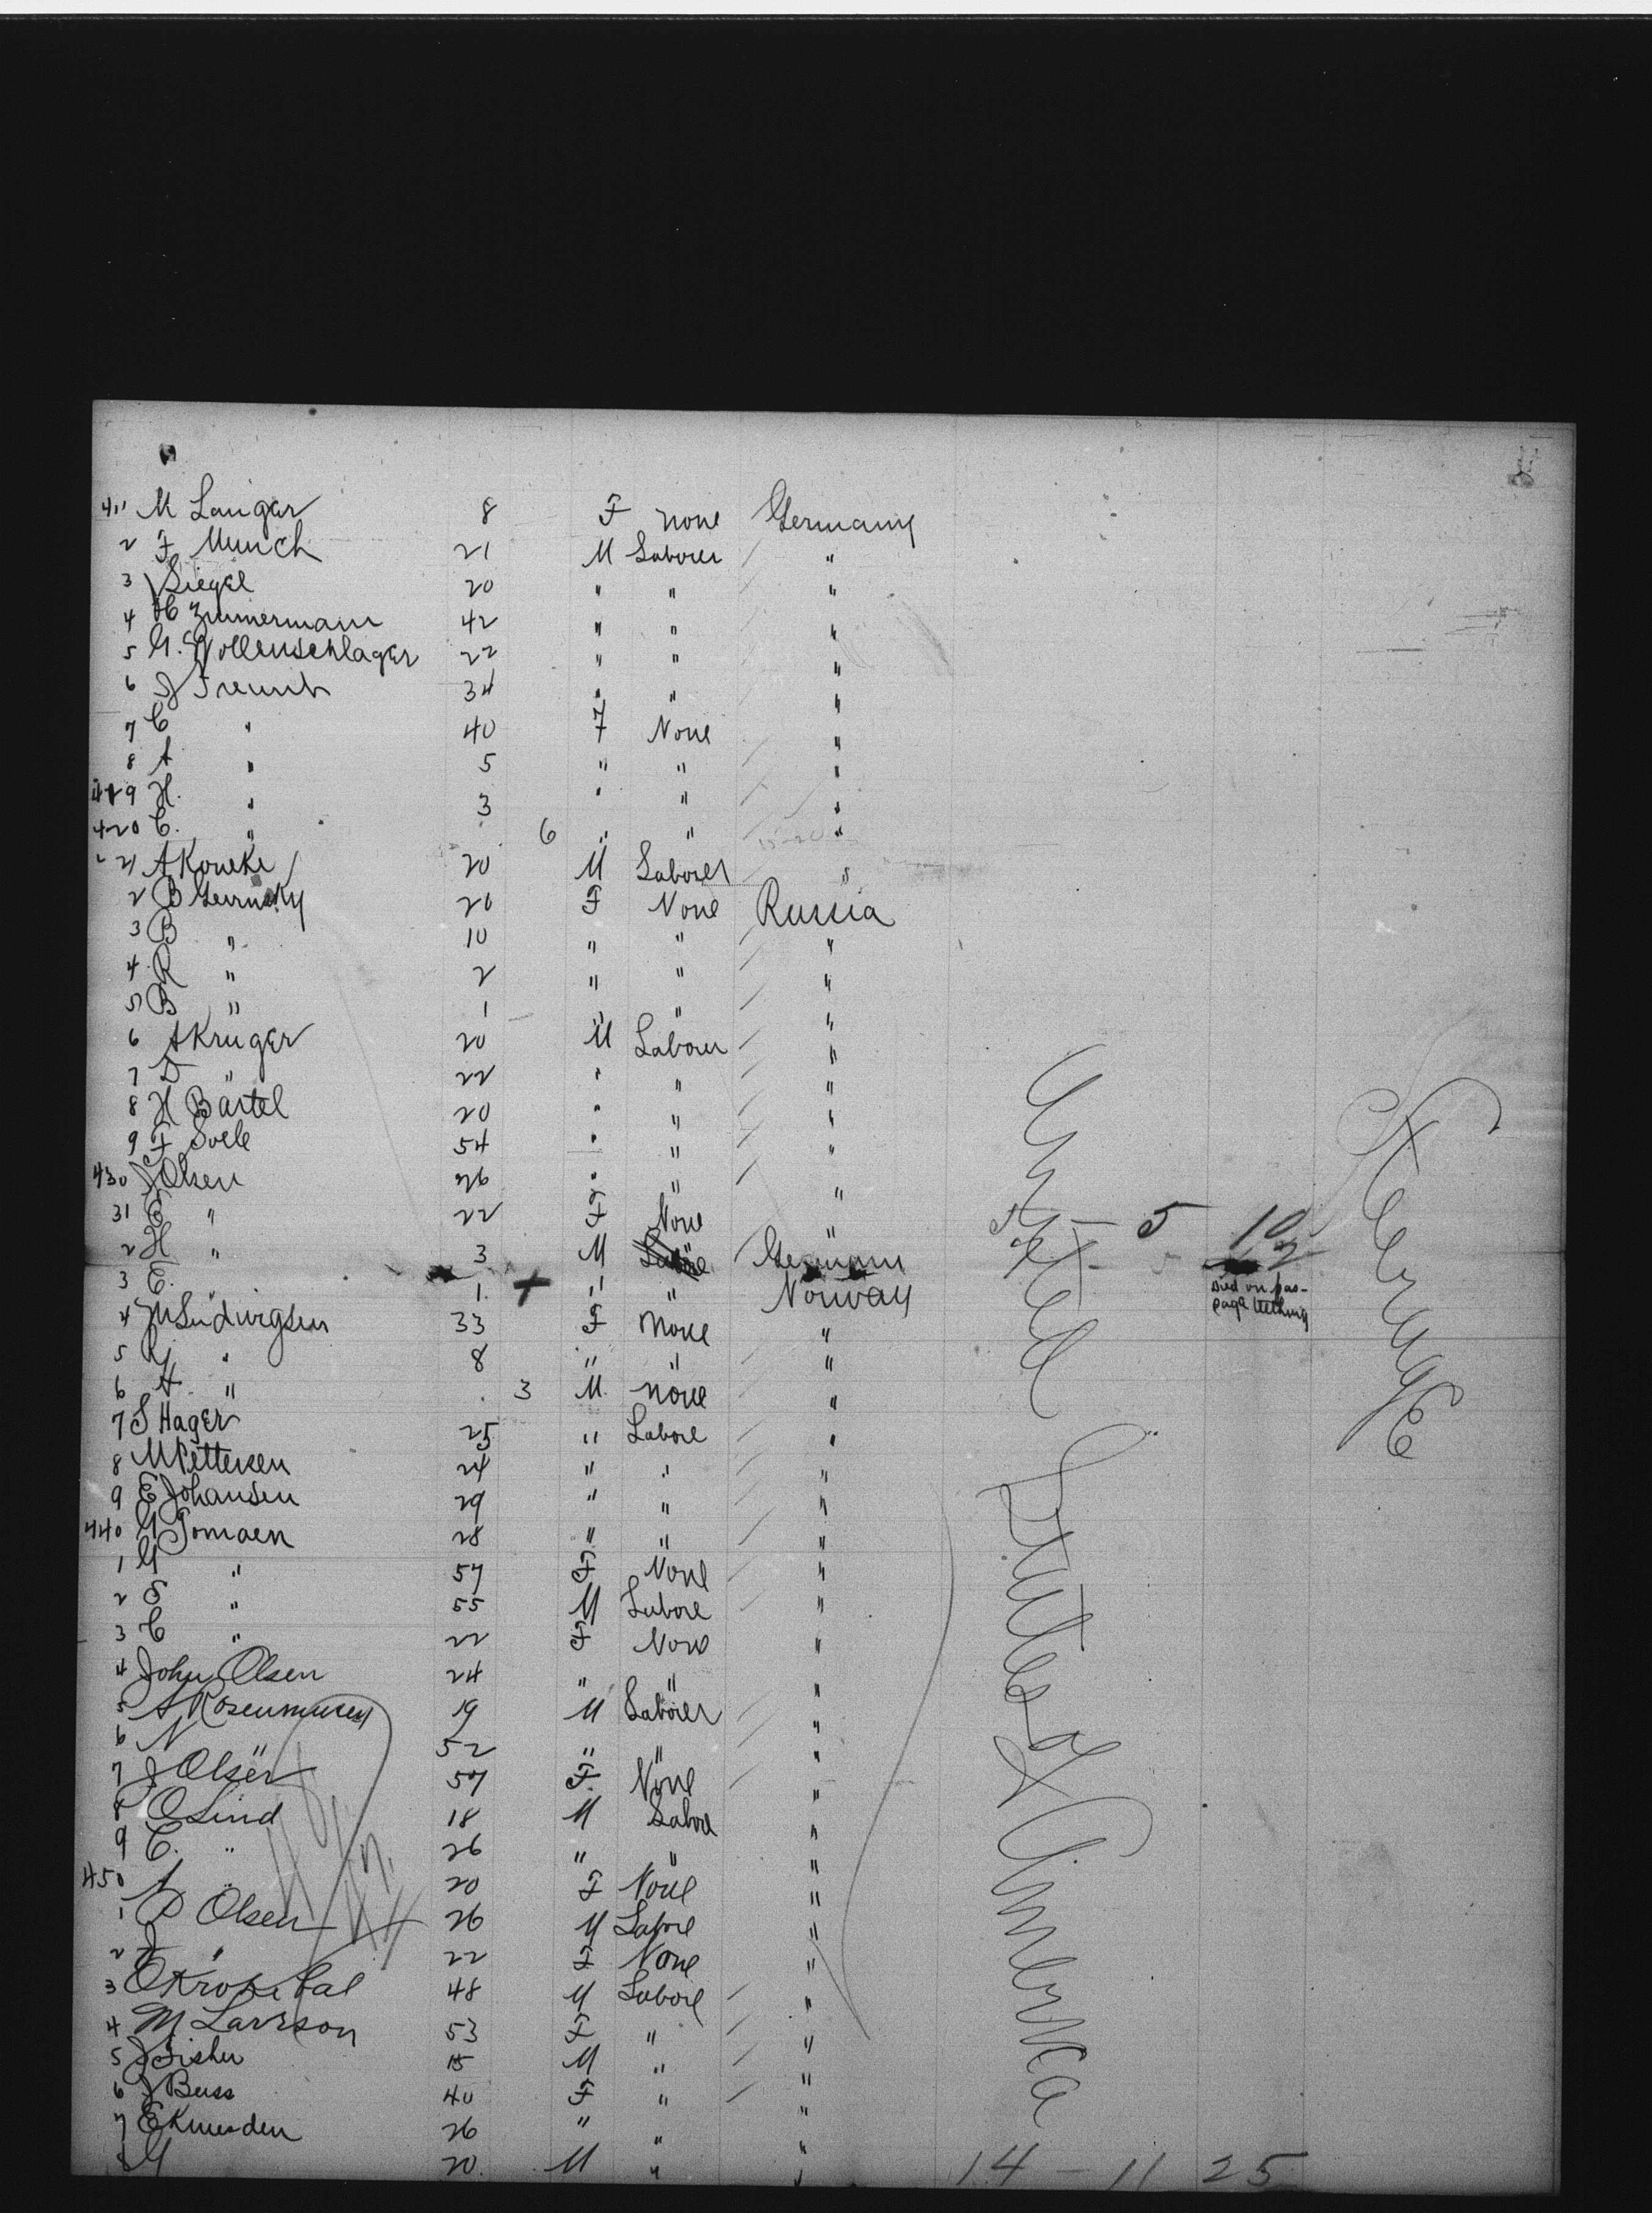 411 M Langer 8 F none Germany
2 F Munch 21 M Laborer "
3 J Siegel 20 " " "
4 H Zimmermann 42 " " "
5 G. Wollenschlager 22 " " "
6 J 34 " " "
7 C " 40 F None "
8 A " 5 " " "
419 H. " 3 " " "
420 C. " 6 " " "
21 A Koneke 20 M Laborer "
2 B 20 F None Russia
3 B " 10 " " "
4 R " 2 " " "
5 B " 1 " " "
6 A Kruger 20 M Laborer "
7 " 22 " " "
8 H Bartel 20 " " "
9 F 54 " " "
430 J Olsen 26 " " "
31 E " 22 F None "
2 H " 3 M Germany
3 E. 1 + " " Norway
4 M Ludwigsen 33 F None "
5 " 8 " " "
6 A " 3 M. none "
7 S Hager 25 " Labore "
8 M Pettersen 24 " " "
9 E Johansen 29 " " "
440 28 " " "
1 G " 57 F None "
2 S " 55 M Labore "
3 C " 22 F None "
4 John Olsen 24 " " "
5 A 19 M Laborer "
6 N 52 " " "
7 J Olsen 57 F. None "
8 O Lind 18 M Labore "
9 C. " 26 " " "
450 A " 20 F None "
1 P Olsen 26 M Labore "
2 J " 22 F None "
3 O 48 M Labore "
4 M Larsson 53 F " "
5 J Fisher 15 M " "
6 J Buss 40 F " "
7 E Knudsen 26 " " "
8 G 20 M " "
United States of America
Steerage
5 10
Died on pas-
sage
14 – 11 25